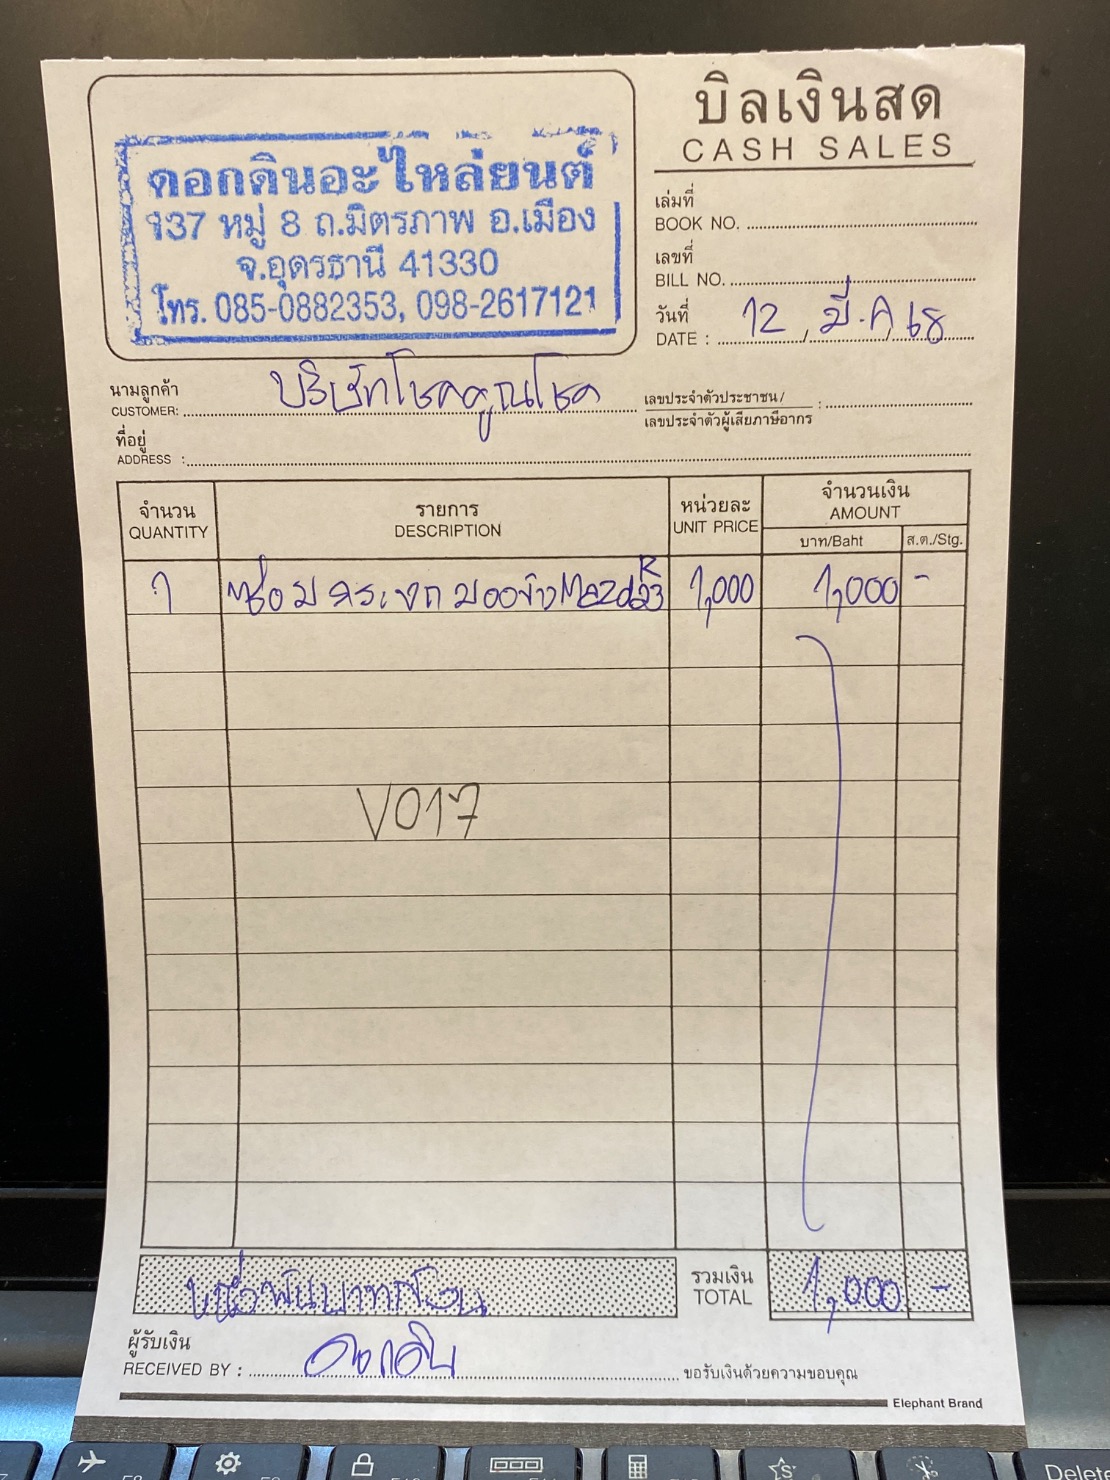 บิลเงินสด
CASH SALES
ดอกดินอะไหล่ยนต์
137 หมู่ 8 ถ.มิตรภาพ อ.เมือง
จ.อุดรธานี 41330
โทร. 085-0882353, 098-2617121
เล่มที่
BOOK NO.
เลขที่
BILL NO.
วันที่
DATE : 12 มี.ค 68
นามลูกค้า
CUSTOMER: บริษัทโชคคูณโชค
เลขประจำตัวประชาชน/
เลขประจำตัวผู้เสียภาษีอากร :
ที่อยู่
ADDRESS :
จำนวน รายการ หน่วยละ จำนวนเงิน
QUANTITY DESCRIPTION UNIT PRICE AMOUNT
บาท/Baht ส.ต./Stg.
1 ซ่อมกระจกมองข้าง Mazda3 R 1,000 1,000 -
V017
หนึ่งพันบาทถ้วน รวมเงิน 1,000 -
TOTAL
ผู้รับเงิน
RECEIVED BY : ดอกดิน ขอรับเงินด้วยความขอบคุณ
Elephant Brand
Delete